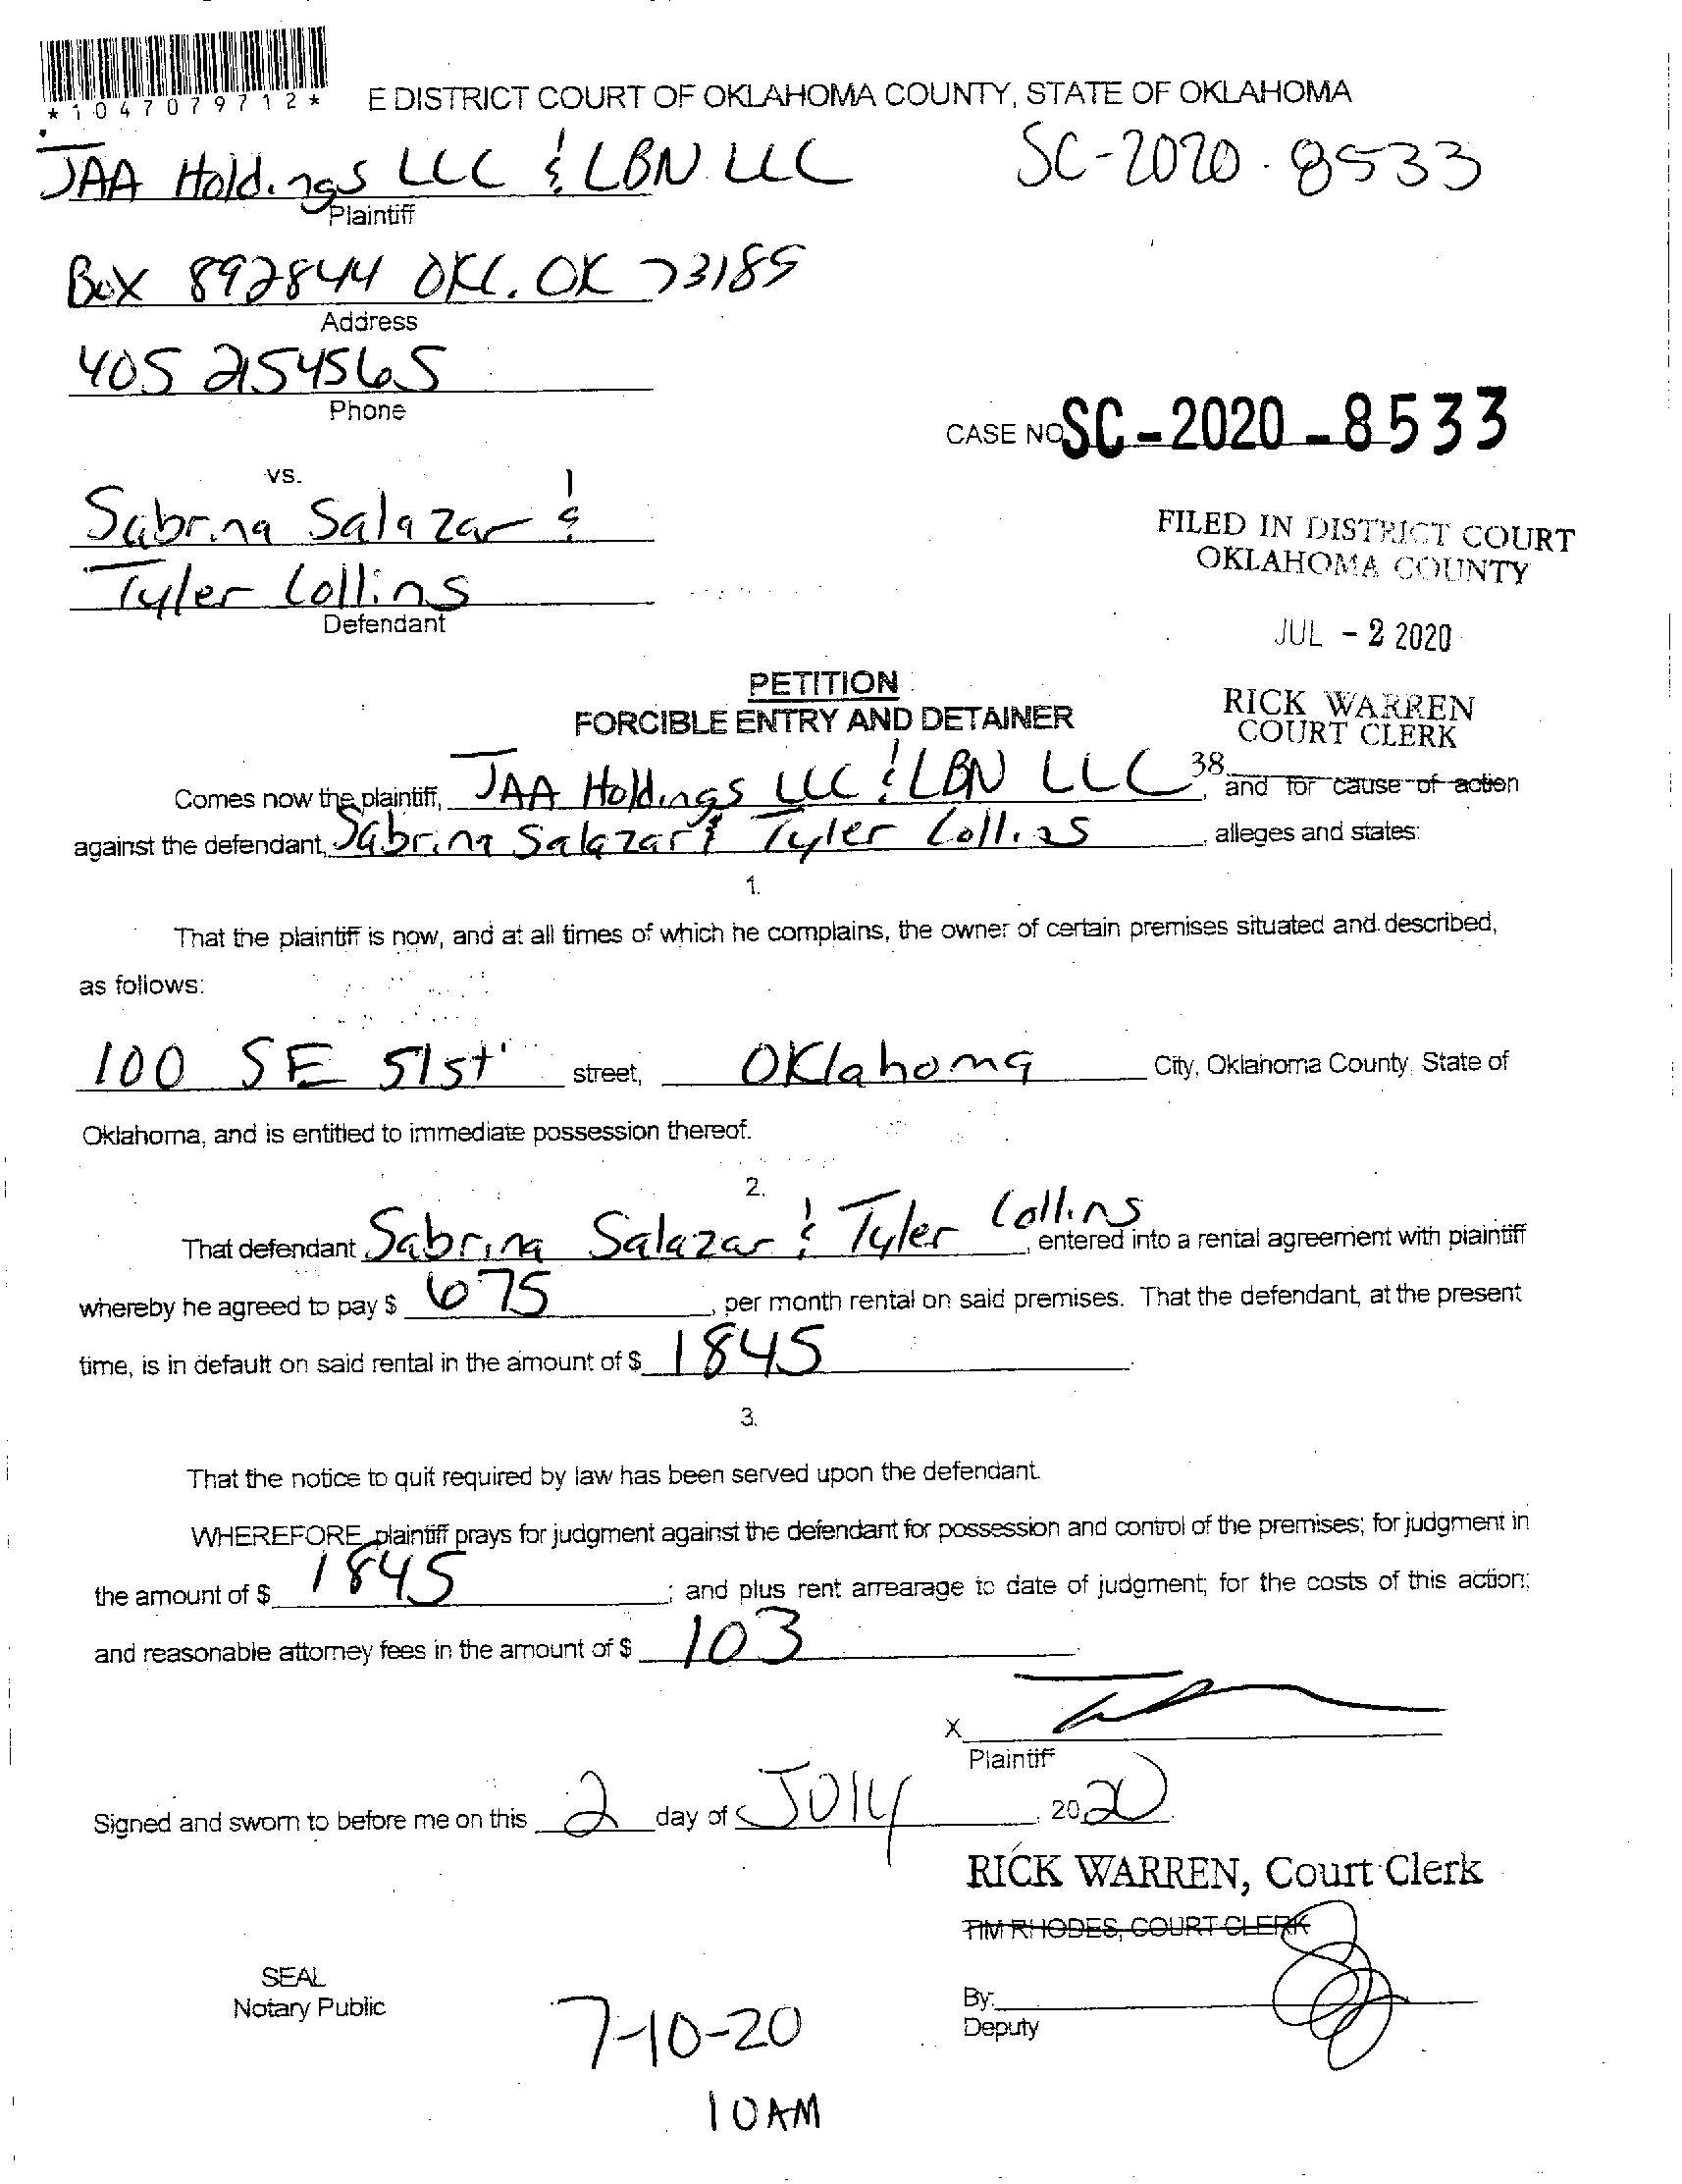 *1047079712*
E DISTRICT COURT OF OKLAHOMA COUNTY, STATE OF OKLAHOMA
JAA Holdings LLC & LBN LLC
SC-2020-8533
Plaintiff
Box 892844 OKC. OK 73189
Address
405 2154565
Phone
CASE NO SC-2020-8533
vs.
Sabrina Salazar &
Tyler Collins
Defendant
FILED IN DISTRICT COURT
OKLAHOMA COUNTY
JUL - 2 2020
PETITION
FORCIBLE ENTRY AND DETAINER
RICK WARREN
COURT CLERK
38
Comes now the plaintiff, JAA Holdings LLC & LBN LLC, and for cause of action
against the defendant, Sabrina Salazar & Tyler Collins, alleges and states:
1.
That the plaintiff is now, and at all times of which he complains, the owner of certain premises situated and described,
as follows:
100 SE 51st street, Oklahoma City, Oklahoma County, State of
Oklahoma, and is entitled to immediate possession thereof.
2.
That defendant Sabrina Salazar & Tyler Collins, entered into a rental agreement with plaintiff
whereby he agreed to pay $ 675, per month rental on said premises. That the defendant, at the present
time, is in default on said rental in the amount of $ 1845.
3.
That the notice to quit required by law has been served upon the defendant.
WHEREFORE, plaintiff prays for judgment against the defendant for possession and control of the premises; for judgment in
the amount of $ 1845; and plus rent arrearage to date of judgment; for the costs of this action;
and reasonable attorney fees in the amount of $ 103.
X
Plaintiff
Signed and sworn to before me on this 2 day of JUly, 2020.
RICK WARREN, Court Clerk
TIM RHODES, COURT CLERK
SEAL
Notary Public
By:
Deputy
7-10-20
10AM